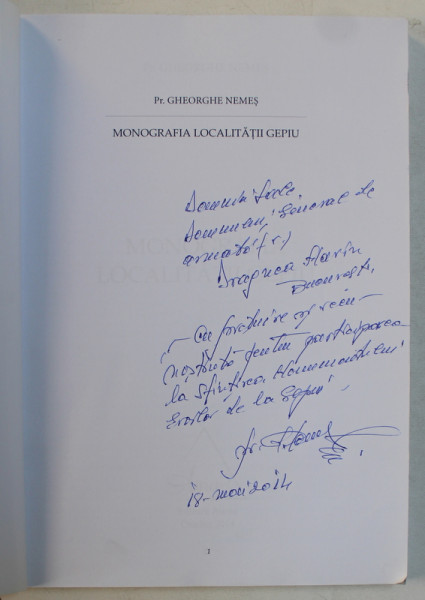 Pr. GHEORGHE NEMEȘ
MONOGRAFIA LOCALITĂȚII GEPIU
Domniei Sale,
Domnului General de
armată (r)
Dragnea Florin
București,
– Cu prețuire și recu-
noștință pentru participarea
la Sfințirea Monumentului
Eroilor de la Gepiu,
Pr.
18-mai 2014
1